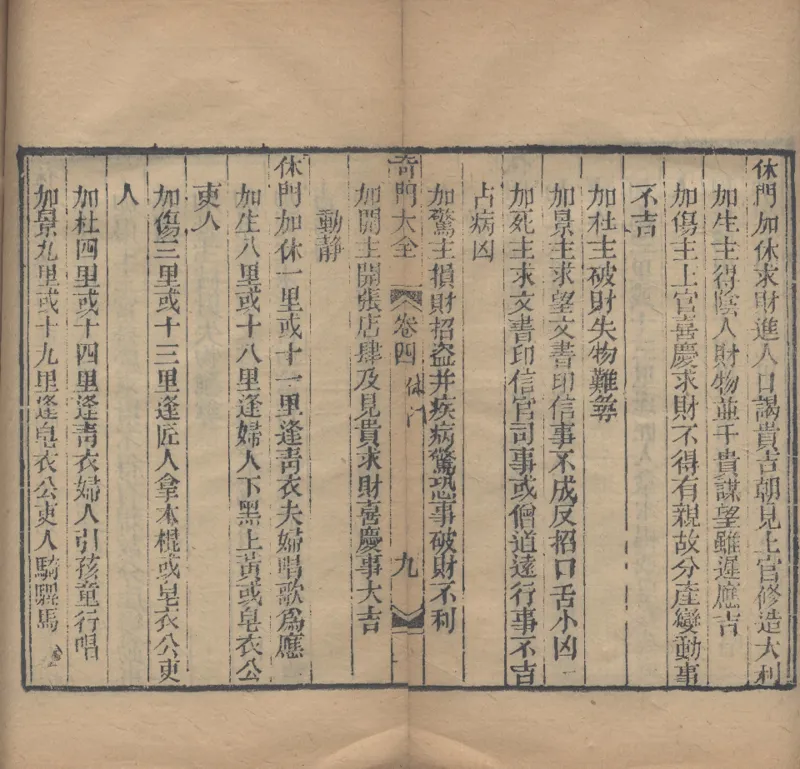 休門加休求財進人口謁貴吉朝見上官修造大利
加生主得陰人財物並干貴謀望雖遲應吉
加傷主上官喜慶求財不得有親故分產變動事
不吉
加杜主破財失物難尋
加景主求望文書印信事不成反招口舌小凶
加死主求文書印信官司事或僧道遠行事不吉
占病凶
加驚主損財招盗并疾病驚恐事破財不利
奇門大全 卷四 休門 九
加開主開張店肆及見貴求財喜慶事大吉
動靜
休門加休一里或十一里逢靑衣夫婦唱歌爲應
加生八里或十八里逢婦人下黑上黃或皂衣公
吏人
加傷三里或十三里逢匠人拿木棍或皂衣公吏
人
加杜四里或十四里逢靑衣婦人引孩童行唱
加景九里或十九里逢皂衣公吏人騎騾馬